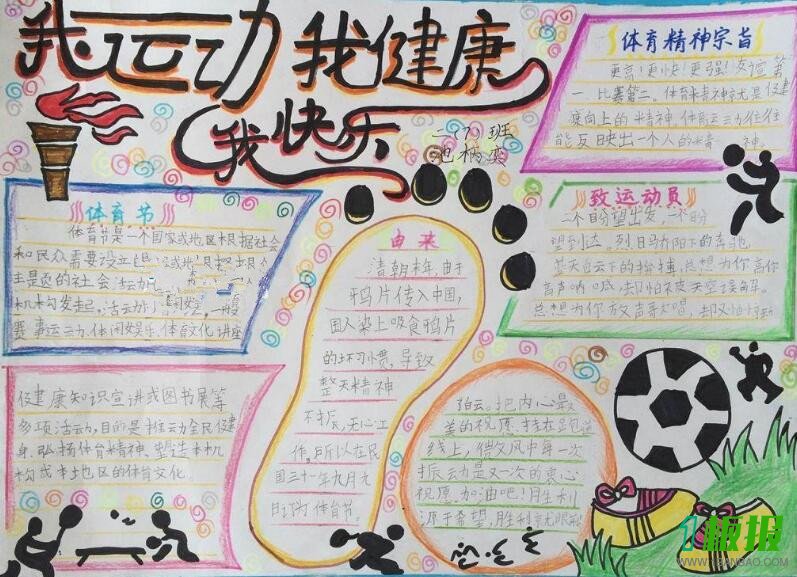 我运动 我健康
我快乐
二(7)班
体育精神宗旨
更高！更快！更强！友谊第
一，比赛第二。体育精神就是健康
向上的精神，体育运动往往
能反映出一个人的精神。
体育节
体育节是一个国家或地区根据社会
和民众需要设立
主题的社会活动
机构发起，活动
赛事运动、体闲娱乐、体育文化讲座
健康知识宣讲或图书展等
多项活动，目的是推动全民健
身、弘扬体育精神、塑造本机
构或本地区的体育文化。
由来
清朝末年，由于
鸦片传入中国，
国人染上吸食鸦片
的坏习惯，导致
整天精神
不振，无心工
作。所以在民
国三十一年九月九
日订为体育节。
致运动员
一个盼望出发，一个盼
望到达。烈日骄阳下的奔驰，
蓝天白云下的拚搏，总想为你高
声呐喊，却只怕被天空误解。
总想为你放声歌唱，却又怕
白云。把内心最
美的祝愿，挂在跑道
线上，借文风中每一次
振动是又一次的衷心
祝愿。加油吧！胜利
源于希望，胜利
1板报
WWW.1BANBAO.COM